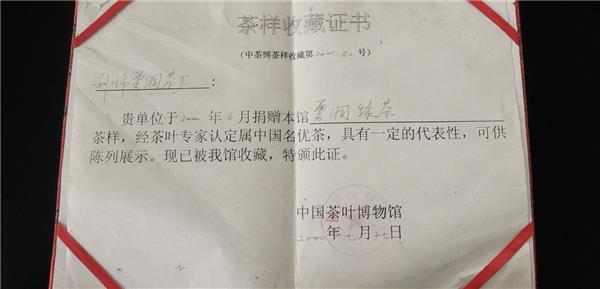 茶样收藏证书
(中茶博茶样收藏第2000 号)
利川市 洞茶厂:
贵单位于2000年6月捐赠本馆 洞绿茶
茶样,经茶叶专家认定属中国名优茶,具有一定的代表性,可供
陈列展示。现已被我馆收藏,特颁此证。
中国茶叶博物馆
2000年七月 日